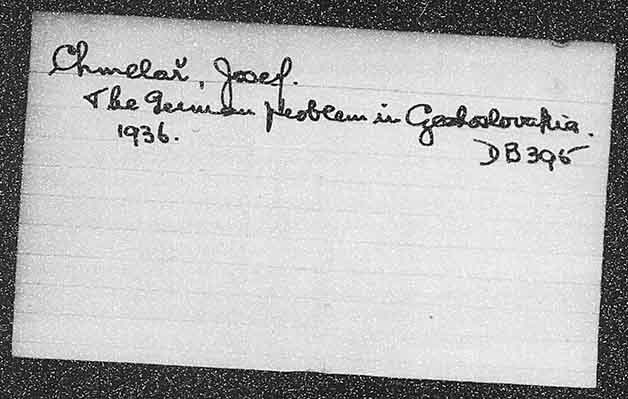 Chmelař, Josef.
The German problem in Czechoslovakia.
1936.
DB395